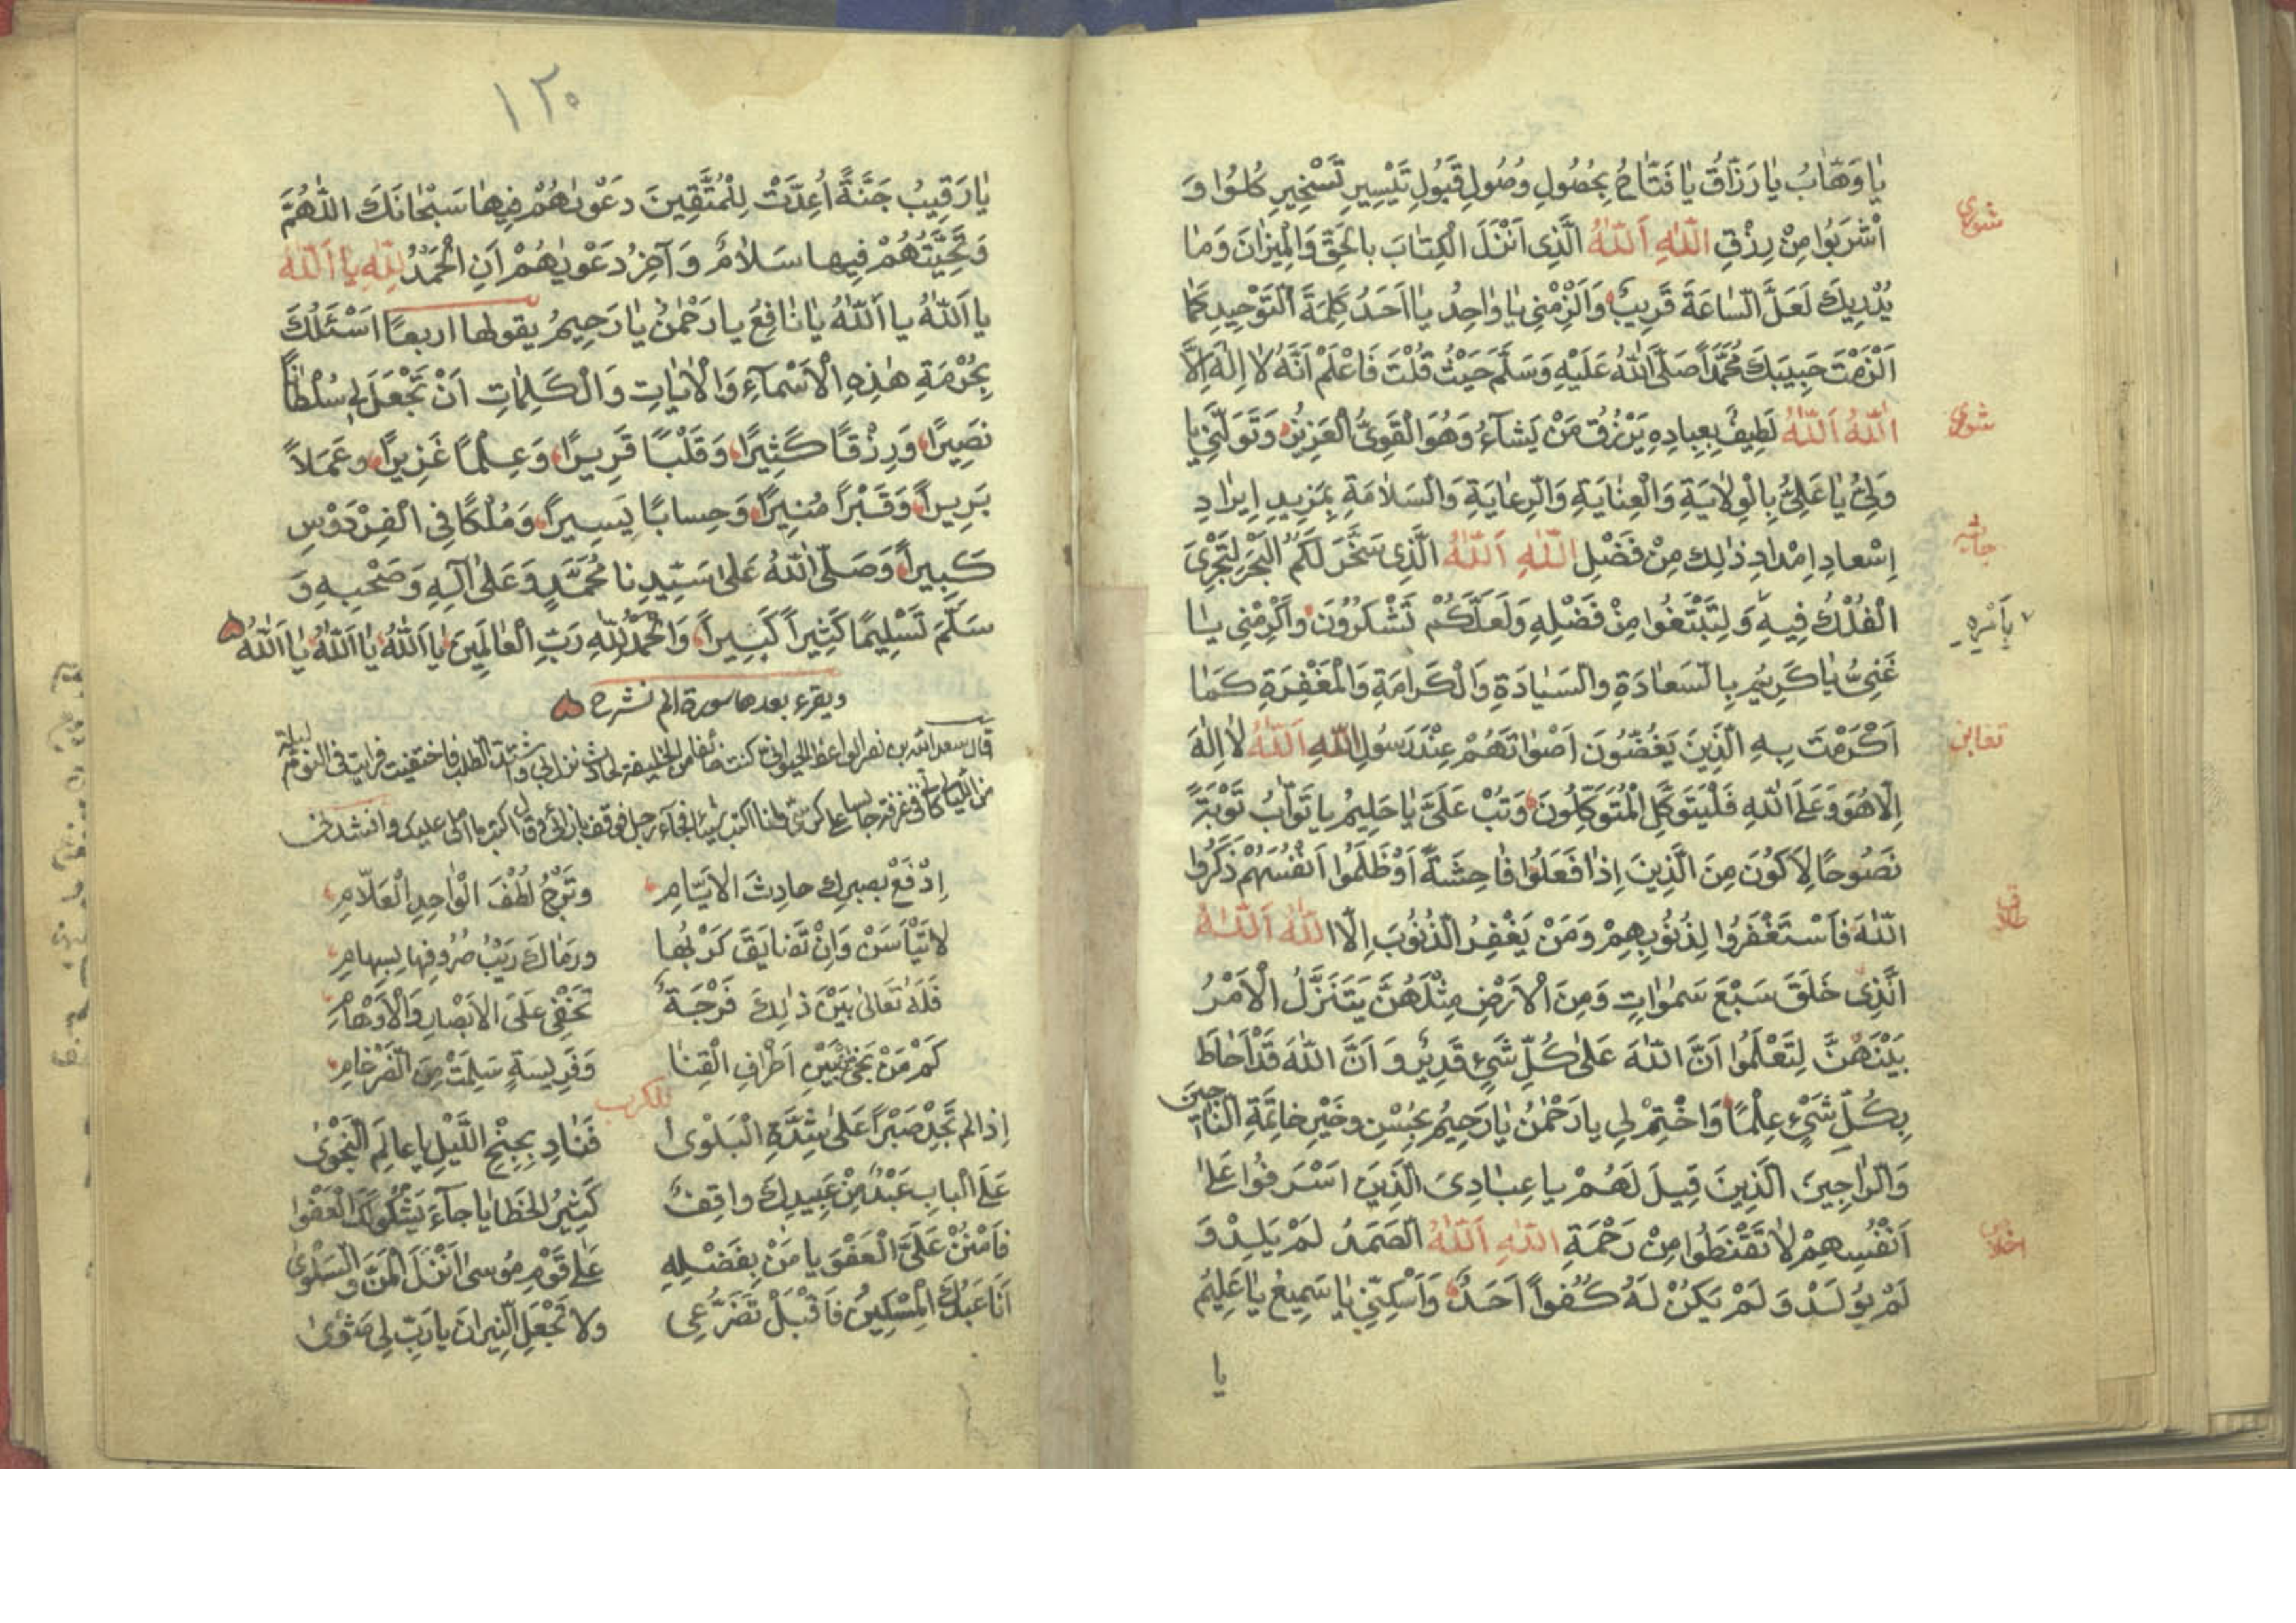 يَا وَهَّابُ يَا رَزَّاقُ يَا فَتَّاحُ بِحُصُولِ وُصُولِ قَبُولِ تَيْسِيرِ تَسْخِيرِ كُلُوا وَ
شورى
اشْرَبُوا مِنْ رِزْقِ اللّٰهِ اَللّٰهُ الَّذِى اَنْزَلَ الْكِتَابَ بِالْحَقِّ وَالْمِيزَانَ وَمَا
يُدْرِيكَ لَعَلَّ السَّاعَةَ قَرِيبٌ وَاَلْزِمْنِى يَا وَاحِدُ يَا اَحَدُ كَلِمَةَ التَّوْحِيدِ كَمَا
اَلْزَمْتَ حَبِيبَكَ مُحَمَّدًا صَلَّى اللّٰهُ عَلَيْهِ وَسَلَّمَ حَيْثُ قُلْتَ فَاعْلَمْ اَنَّهُ لَا اِلٰهَ اِلَّا
شورى
اللّٰهُ اَللّٰهُ لَطِيفٌ بِعِبَادِهِ يَرْزُقُ مَنْ يَشَآءُ وَهُوَ الْقَوِىُّ الْعَزِيزُ وَتَوَلَّنِى يَا
وَلِىُّ يَا عَلِىُّ بِالْوِلَايَةِ وَالْعِنَايَةِ وَالرِّعَايَةِ وَالسَّلَامَةِ بِمَزِيدِ اِيرَادِ
جاثيه
اِسْعَادِ اِمْدَادِ ذٰلِكَ مِنْ فَضْلِ اللّٰهِ اَللّٰهُ الَّذِى سَخَّرَ لَكُمُ الْبَحْرَ لِتَجْرِىَ
بِاَمْرِهِ
الْفُلْكُ فِيهِ وَلِتَبْتَغُوا مِنْ فَضْلِهِ وَلَعَلَّكُمْ تَشْكُرُونَ وَاَكْرِمْنِى يَا
غَنِىُّ يَا كَرِيمُ بِالسَّعَادَةِ وَالسِّيَادَةِ وَالْكَرَامَةِ وَالْمَغْفِرَةِ كَمَا
تغابن
اَكْرَمْتَ بِهِ الَّذِينَ يَغُضُّونَ اَصْوَاتَهُمْ عِنْدَ رَسُولِ اللّٰهِ اَللّٰهُ لَا اِلٰهَ
اِلَّا هُوَ وَعَلَى اللّٰهِ فَلْيَتَوَكَّلِ الْمُتَوَكِّلُونَ وَتُبْ عَلَىَّ يَا حَلِيمُ يَا تَوَّابُ تَوْبَةً
نَصُوحًا لِاَكُونَ مِنَ الَّذِينَ اِذَا فَعَلُوا فَاحِشَةً اَوْ ظَلَمُوا اَنْفُسَهُمْ ذَكَرُوا
طلاق
اللّٰهَ فَاسْتَغْفَرُوا لِذُنُوبِهِمْ وَمَنْ يَغْفِرُ الذُّنُوبَ اِلَّا اللّٰهُ اَللّٰهُ
الَّذِى خَلَقَ سَبْعَ سَمٰوَاتٍ وَمِنَ الْاَرْضِ مِثْلَهُنَّ يَتَنَزَّلُ الْاَمْرُ
بَيْنَهُنَّ لِتَعْلَمُوا اَنَّ اللّٰهَ عَلٰى كُلِّ شَىْءٍ قَدِيرٌ وَاَنَّ اللّٰهَ قَدْ اَحَاطَ
بِكُلِّ شَىْءٍ عِلْمًا وَاخْتِمْ لِى يَا رَحْمٰنُ يَا رَحِيمُ بِحُسْنِ وَخَيْرِ خَاتِمَةِ النَّاجِينَ
وَالرَّاجِينَ الَّذِينَ قِيلَ لَهُمْ يَا عِبَادِىَ الَّذِينَ اَسْرَفُوا عَلٰى
اخلاص
اَنْفُسِهِمْ لَا تَقْنَطُوا مِنْ رَحْمَةِ اللّٰهِ اَللّٰهُ الصَّمَدُ لَمْ يَلِدْ وَ
لَمْ يُولَدْ وَلَمْ يَكُنْ لَهُ كُفُوًا اَحَدٌ وَاَسْكِنِّى يَا سَمِيعُ يَا عَلِيمُ
يا
١٢٠
يَا رَقِيبُ جَنَّةً اُعِدَّتْ لِلْمُتَّقِينَ دَعْوٰيهُمْ فِيهَا سُبْحَانَكَ اللّٰهُمَّ
وَتَحِيَّتُهُمْ فِيهَا سَلَامٌ وَآخِرُ دَعْوٰيهُمْ اَنِ الْحَمْدُ لِلّٰهِ يَا اَللّٰهُ
يَا اَللّٰهُ يَا اَللّٰهُ يَا نَافِعُ يَا رَحْمٰنُ يَا رَحِيمُ يقولها اربعًا اَسْئَلُكَ
بِحُرْمَةِ هٰذِهِ الْاَسْمَآءِ وَالْاٰيَاتِ وَالْكَلِمَاتِ اَنْ تَجْعَلَ لِى سُلْطَانًا
نَصِيرًا وَرِزْقًا كَثِيرًا وَقَلْبًا قَرِيرًا وَعِلْمًا غَزِيرًا وَعَمَلًا
بَرِيرًا وَقَبْرًا مُنِيرًا وَحِسَابًا يَسِيرًا وَمُلْكًا فِى الْفِرْدَوْسِ
كَبِيرًا وَصَلَّى اللّٰهُ عَلٰى سَيِّدِنَا مُحَمَّدٍ وَعَلٰى آلِهِ وَصَحْبِهِ وَ
سَلَّمَ تَسْلِيمًا كَثِيرًا كَبِيرًا وَالْحَمْدُ لِلّٰهِ رَبِّ الْعَالَمِينَ يَا اَللّٰهُ يَا اَللّٰهُ يَا اَللّٰهُ
ويقرء بعدها سورة الم نشرح
قال سعد الله بن نصر الواعظ الحيوانى كنت خائفا من الخليفة لحادث نزل بى واشتد الطلب فاختفيت فرايت فى النوم ليلة
من الليالى كأنى فى غرفة جالسا على كرسى وانا اكتب شيئا فجاء رجل فوقف بازائى وقال اكتب ما املى عليك وانشدنى
اِدْفَعْ بِصَبْرِكَ حَادِثَ الْاَيَّامِ وَتَرَجَّ لُطْفَ الْوَاحِدِ الْعَلَّامِ
لَا تَيْأَسَنْ وَاِنْ تَضَايَقَ كَرْبُهَا وَرَمَاكَ رَيْبُ صُرُوفِهَا بِسِهَامِ
فَلَهُ تَعَالٰى بَيْنَ ذٰلِكَ فَرْجَةٌ تَخْفٰى عَلَى الْاَبْصَارِ وَالْاَوْهَامِ
كَمْ مَنْ نَجٰى بَيْنَ اَطْرَافِ الْقَنَا وَفَرِيسَةٍ سَلِمَتْ مِنَ الضَّرْغَامِ
للكرب
اِذَا لَمْ تَجِدْ صَبْرًا عَلٰى شِدَّةِ الْبَلْوٰى فَنَادِ بِجِنْحِ اللَّيْلِ يَا عَالِمَ النَّجْوٰى
عَلَى الْبَابِ عَبْدٌ مِنْ عَبِيدِكَ وَاقِفٌ كَثِيرُ الْخَطَايَا جَآءَ يَشْكُو لَكَ الْعَفْوَا
فَامْنُنْ عَلَىَّ الْعَفْوَ يَا مَنْ بِفَضْلِهِ عَلٰى قَوْمِ مُوسٰى اَنْزَلَ الْمَنَّ وَالسَّلْوٰى
اَنَا عَبْدُكَ الْمِسْكِينُ فَاقْبَلْ تَضَرُّعِى وَلَا تَجْعَلِ النِّيرَانَ يَا رَبِّ لِى مَثْوٰى